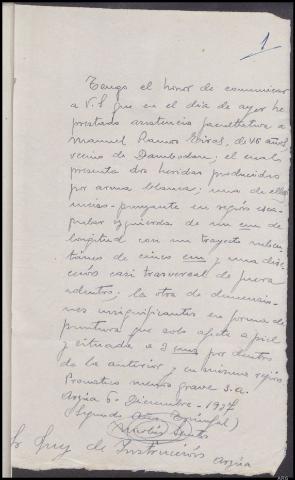 1
Tengo el honor de comunicar
a V.S que en el dia de ayer he
prestado asistencia facultativa a
Manuel Ramos de 46 años,
vecino de Dambodan; el cual
presenta dos heridas producidas
por arma blanca; una de ellas
inciso-punzante en región esca-
pular izquierda de un cm de
longitud con un trayecto subcu-
táneo de cinco cm y una direc-
ción casi trasversal de fuera
a dentro; la otra de dimensio-
nes insignificantes en forma de
puntura que solo afecta a piel
y situada a 3 cms por dentro
de la anterior y en misma región
Pronostico menos grave s.a.
Arzúa 6 Diciembre - 1937
(Segundo Año Triunfal)
Sr Juez de Instrucción Arzúa